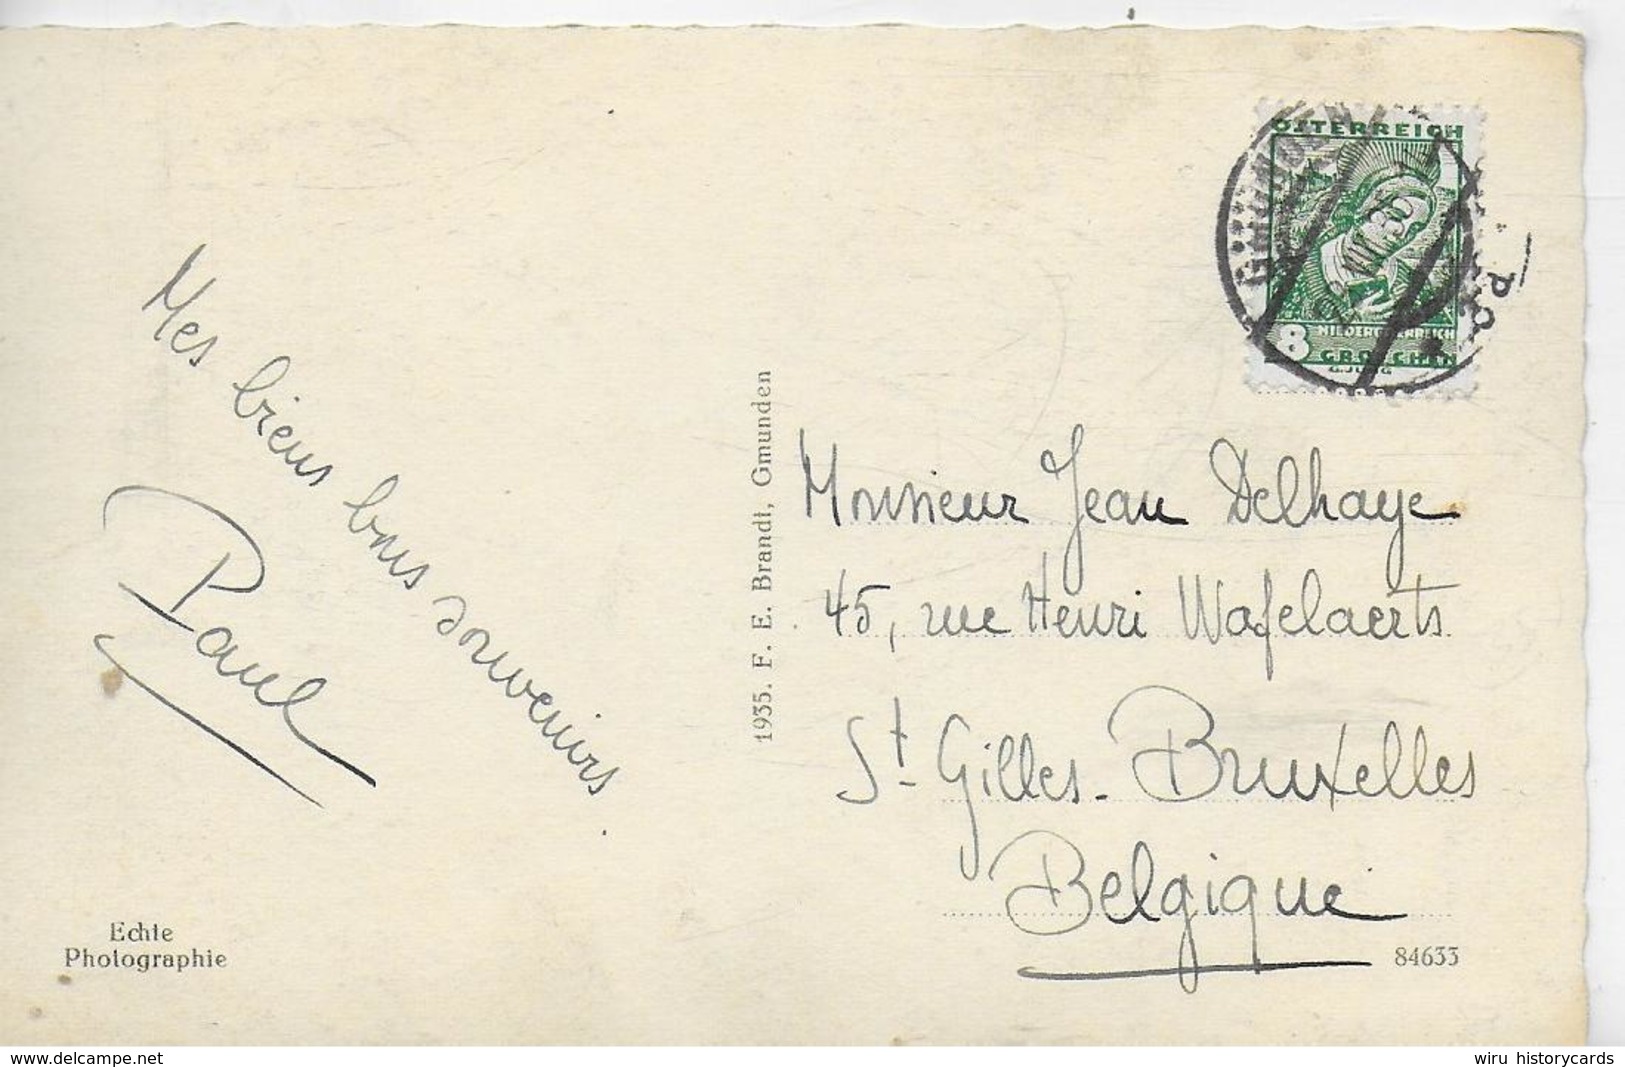 Mes biens bons souvenirs.
Paul
Echte
Photographie
1935. F. E. Brandt, Gmunden
ÖSTERREICH
8
NIEDERÖSTERREICH
GROSCHEN
G.JUNG
GMUNDEN
Monsieur Jean Delhaye
45, rue Henri Wafelaerts
St. Gilles - Bruxelles
Belgique
84633
www.delcampe.net
wiru historycards